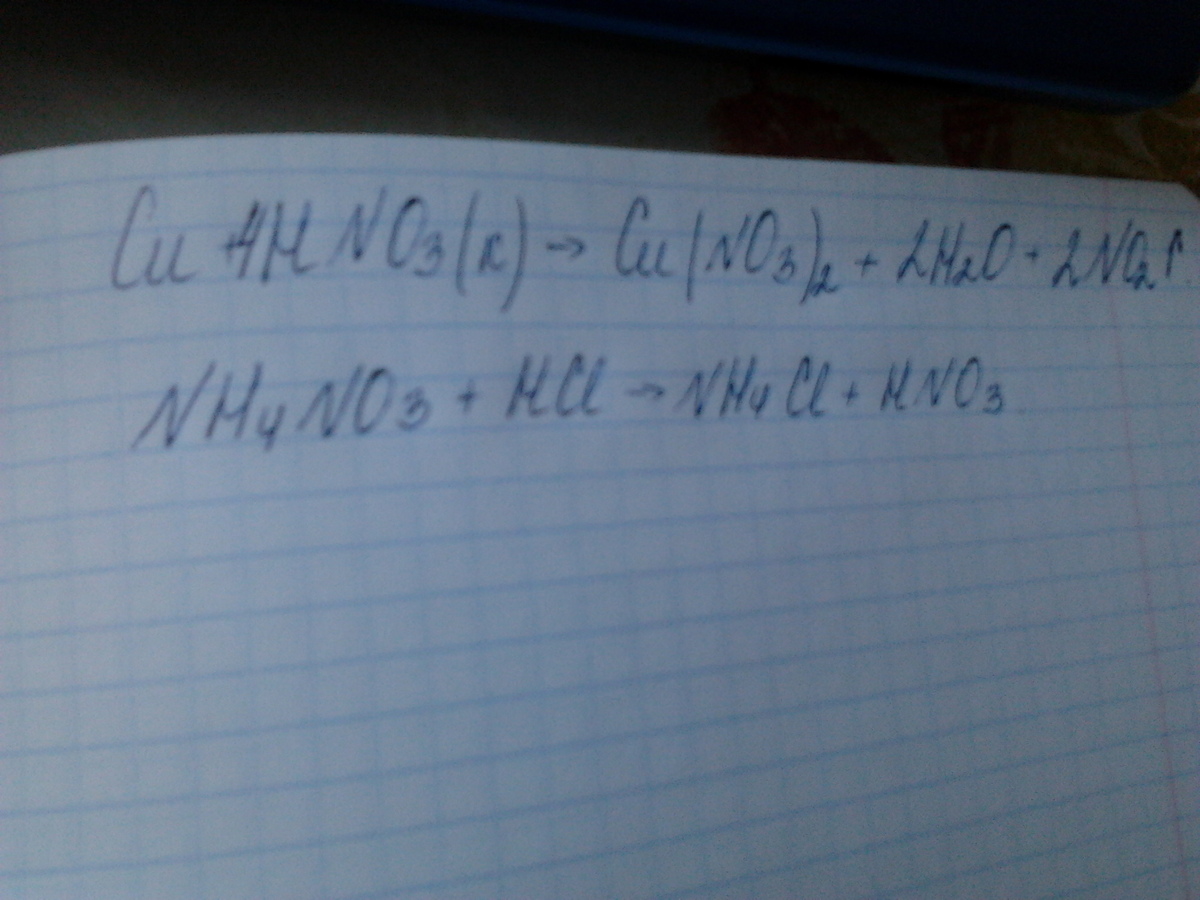 Cu 4HNO₃(к) → Cu(NO₃)₂ + 2H₂O + 2NO₂↑
NH₄NO₃ + HCl → NH₄Cl + HNO₃